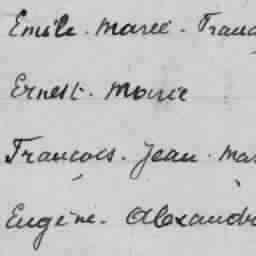 Emile. Marie. Franç
Ernest. Marie
Francois. Jean. Mar
Eugène. Alexandr